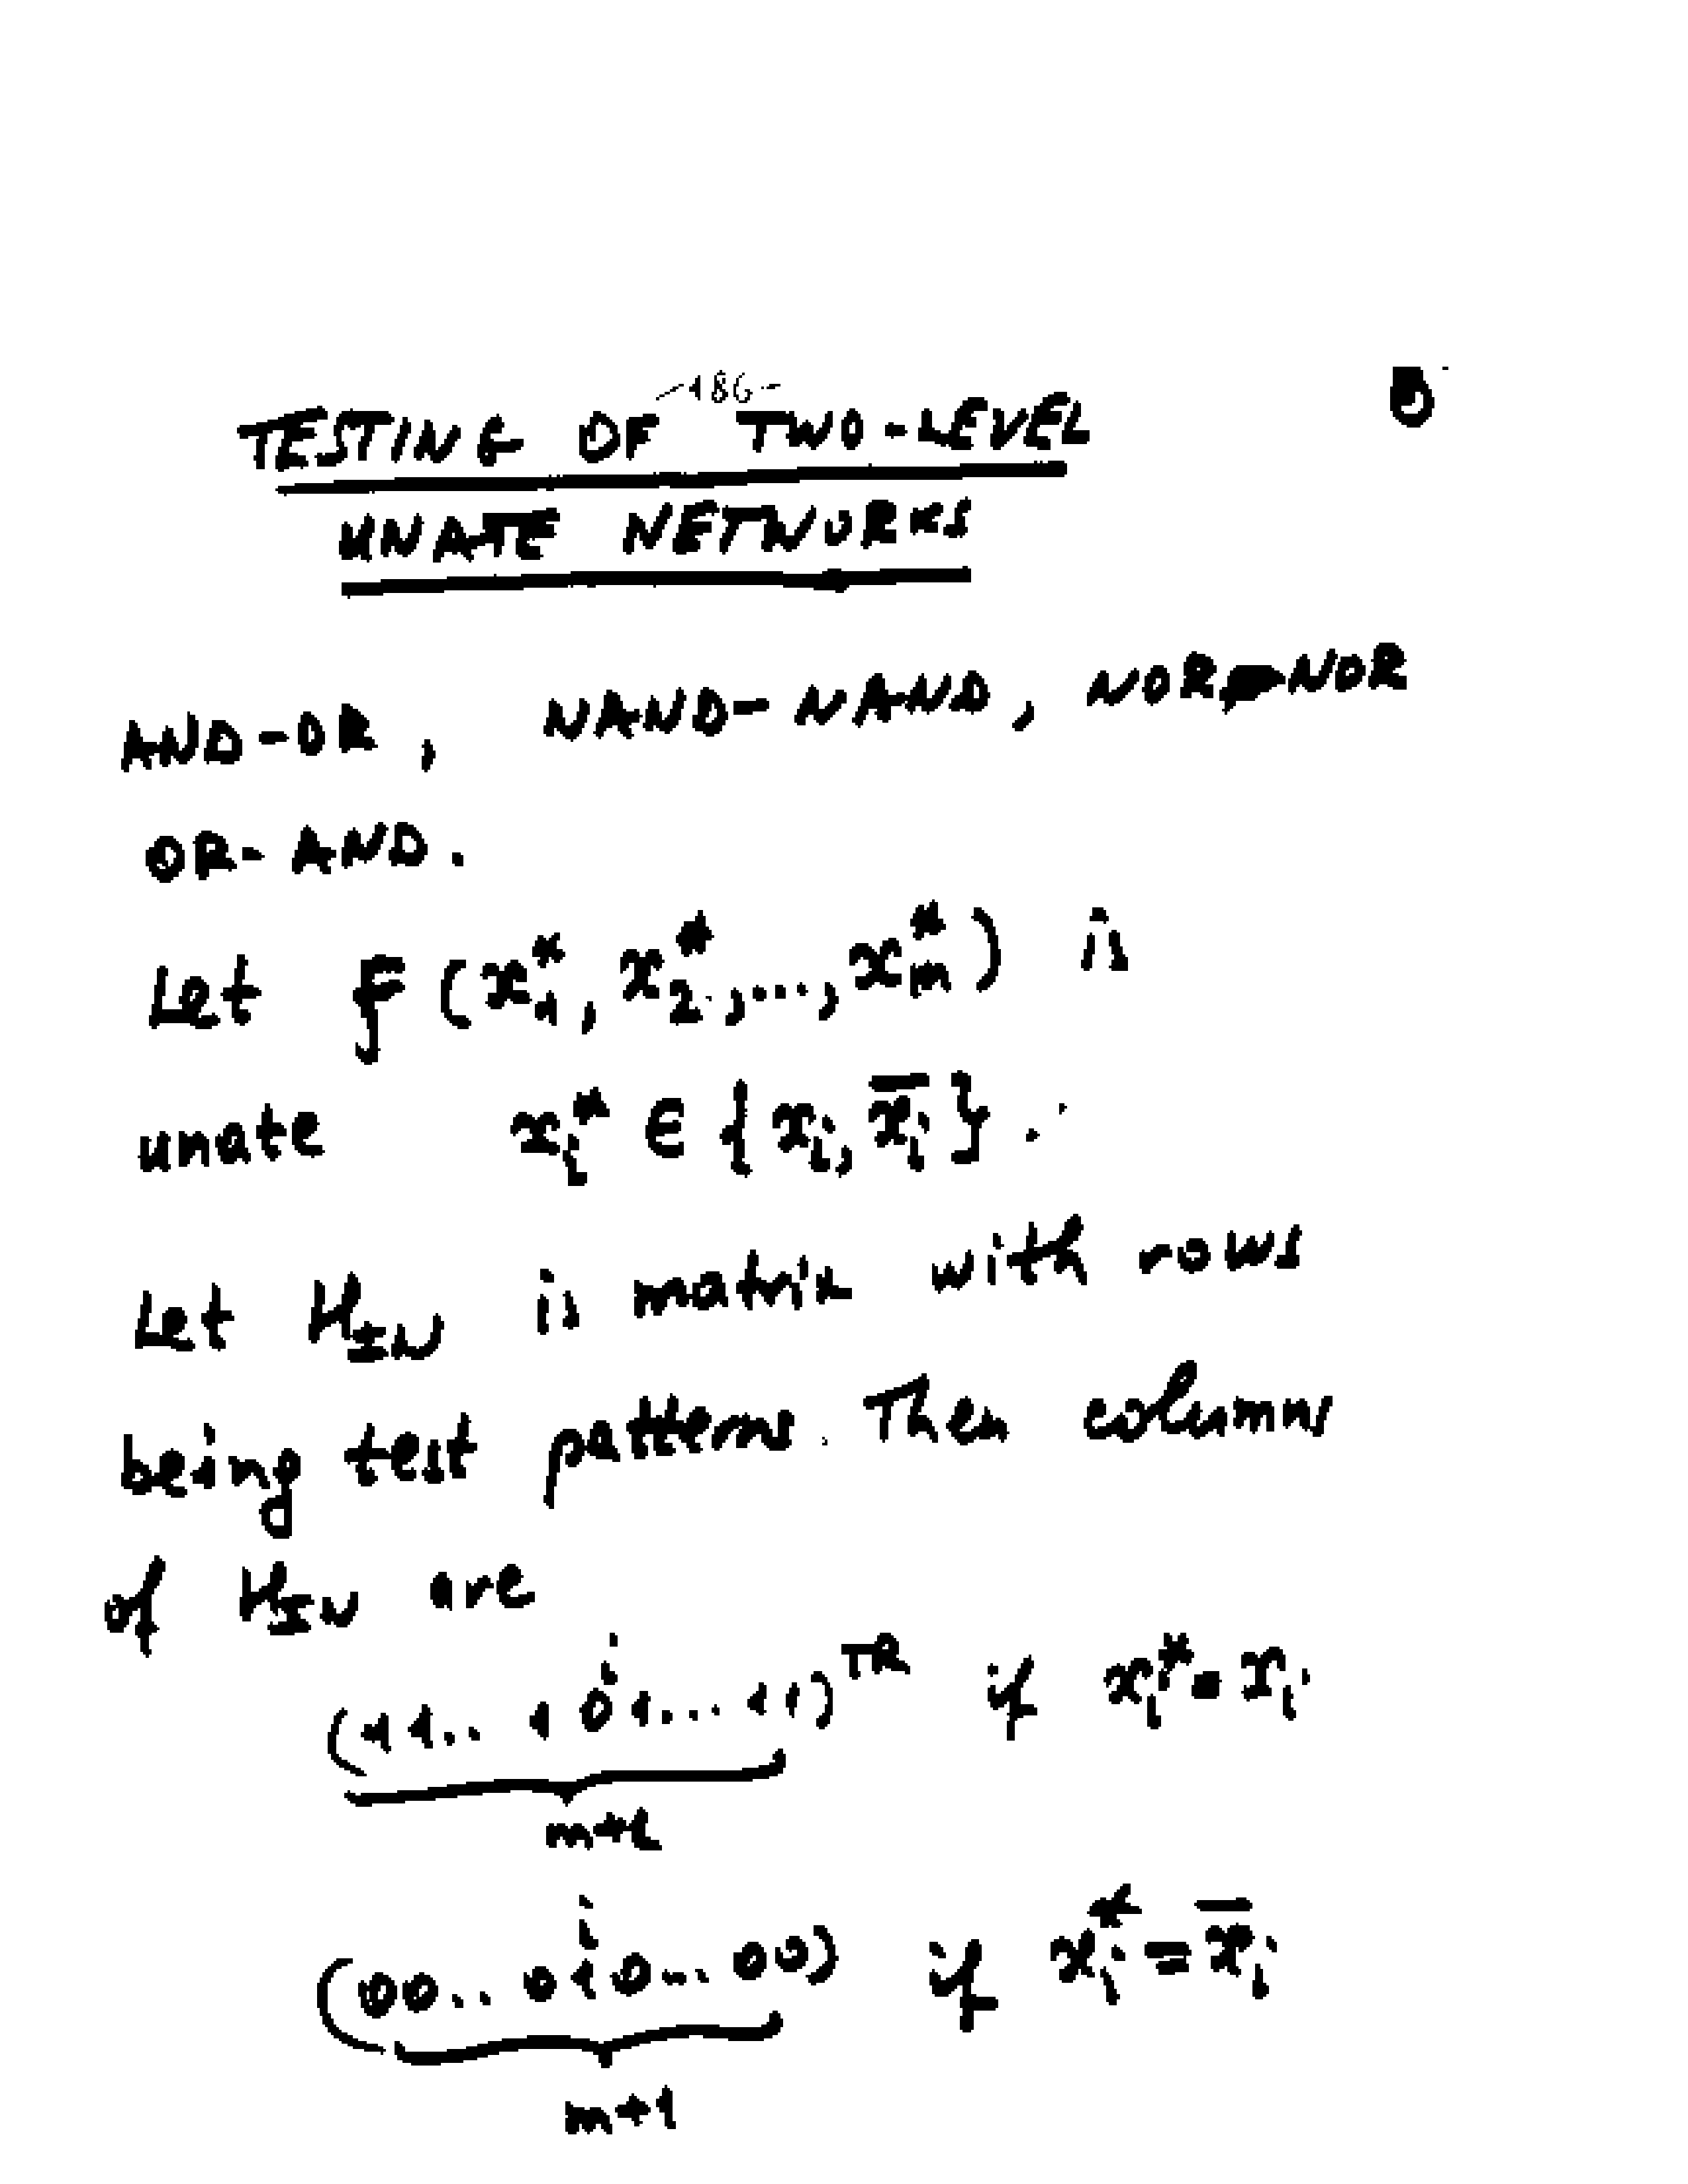 -186-
TESTING OF TWO-LEVEL
UNATE NETWORKS
AND-OR, NAND-NAND, NOR-NOR
OR-AND.
Let f(x₁*, x₂*, ..., xₘ*) is
unate xᵢ* ∈ {xᵢ, x̅ᵢ}.
Let H_IN is matrix with rows
being test patterns. Then columns
of H_IN are
i
(11.. 101...11)^TR if xᵢ* = xᵢ
m+1
i
(00..010...00) if xᵢ* = x̅ᵢ
m+1